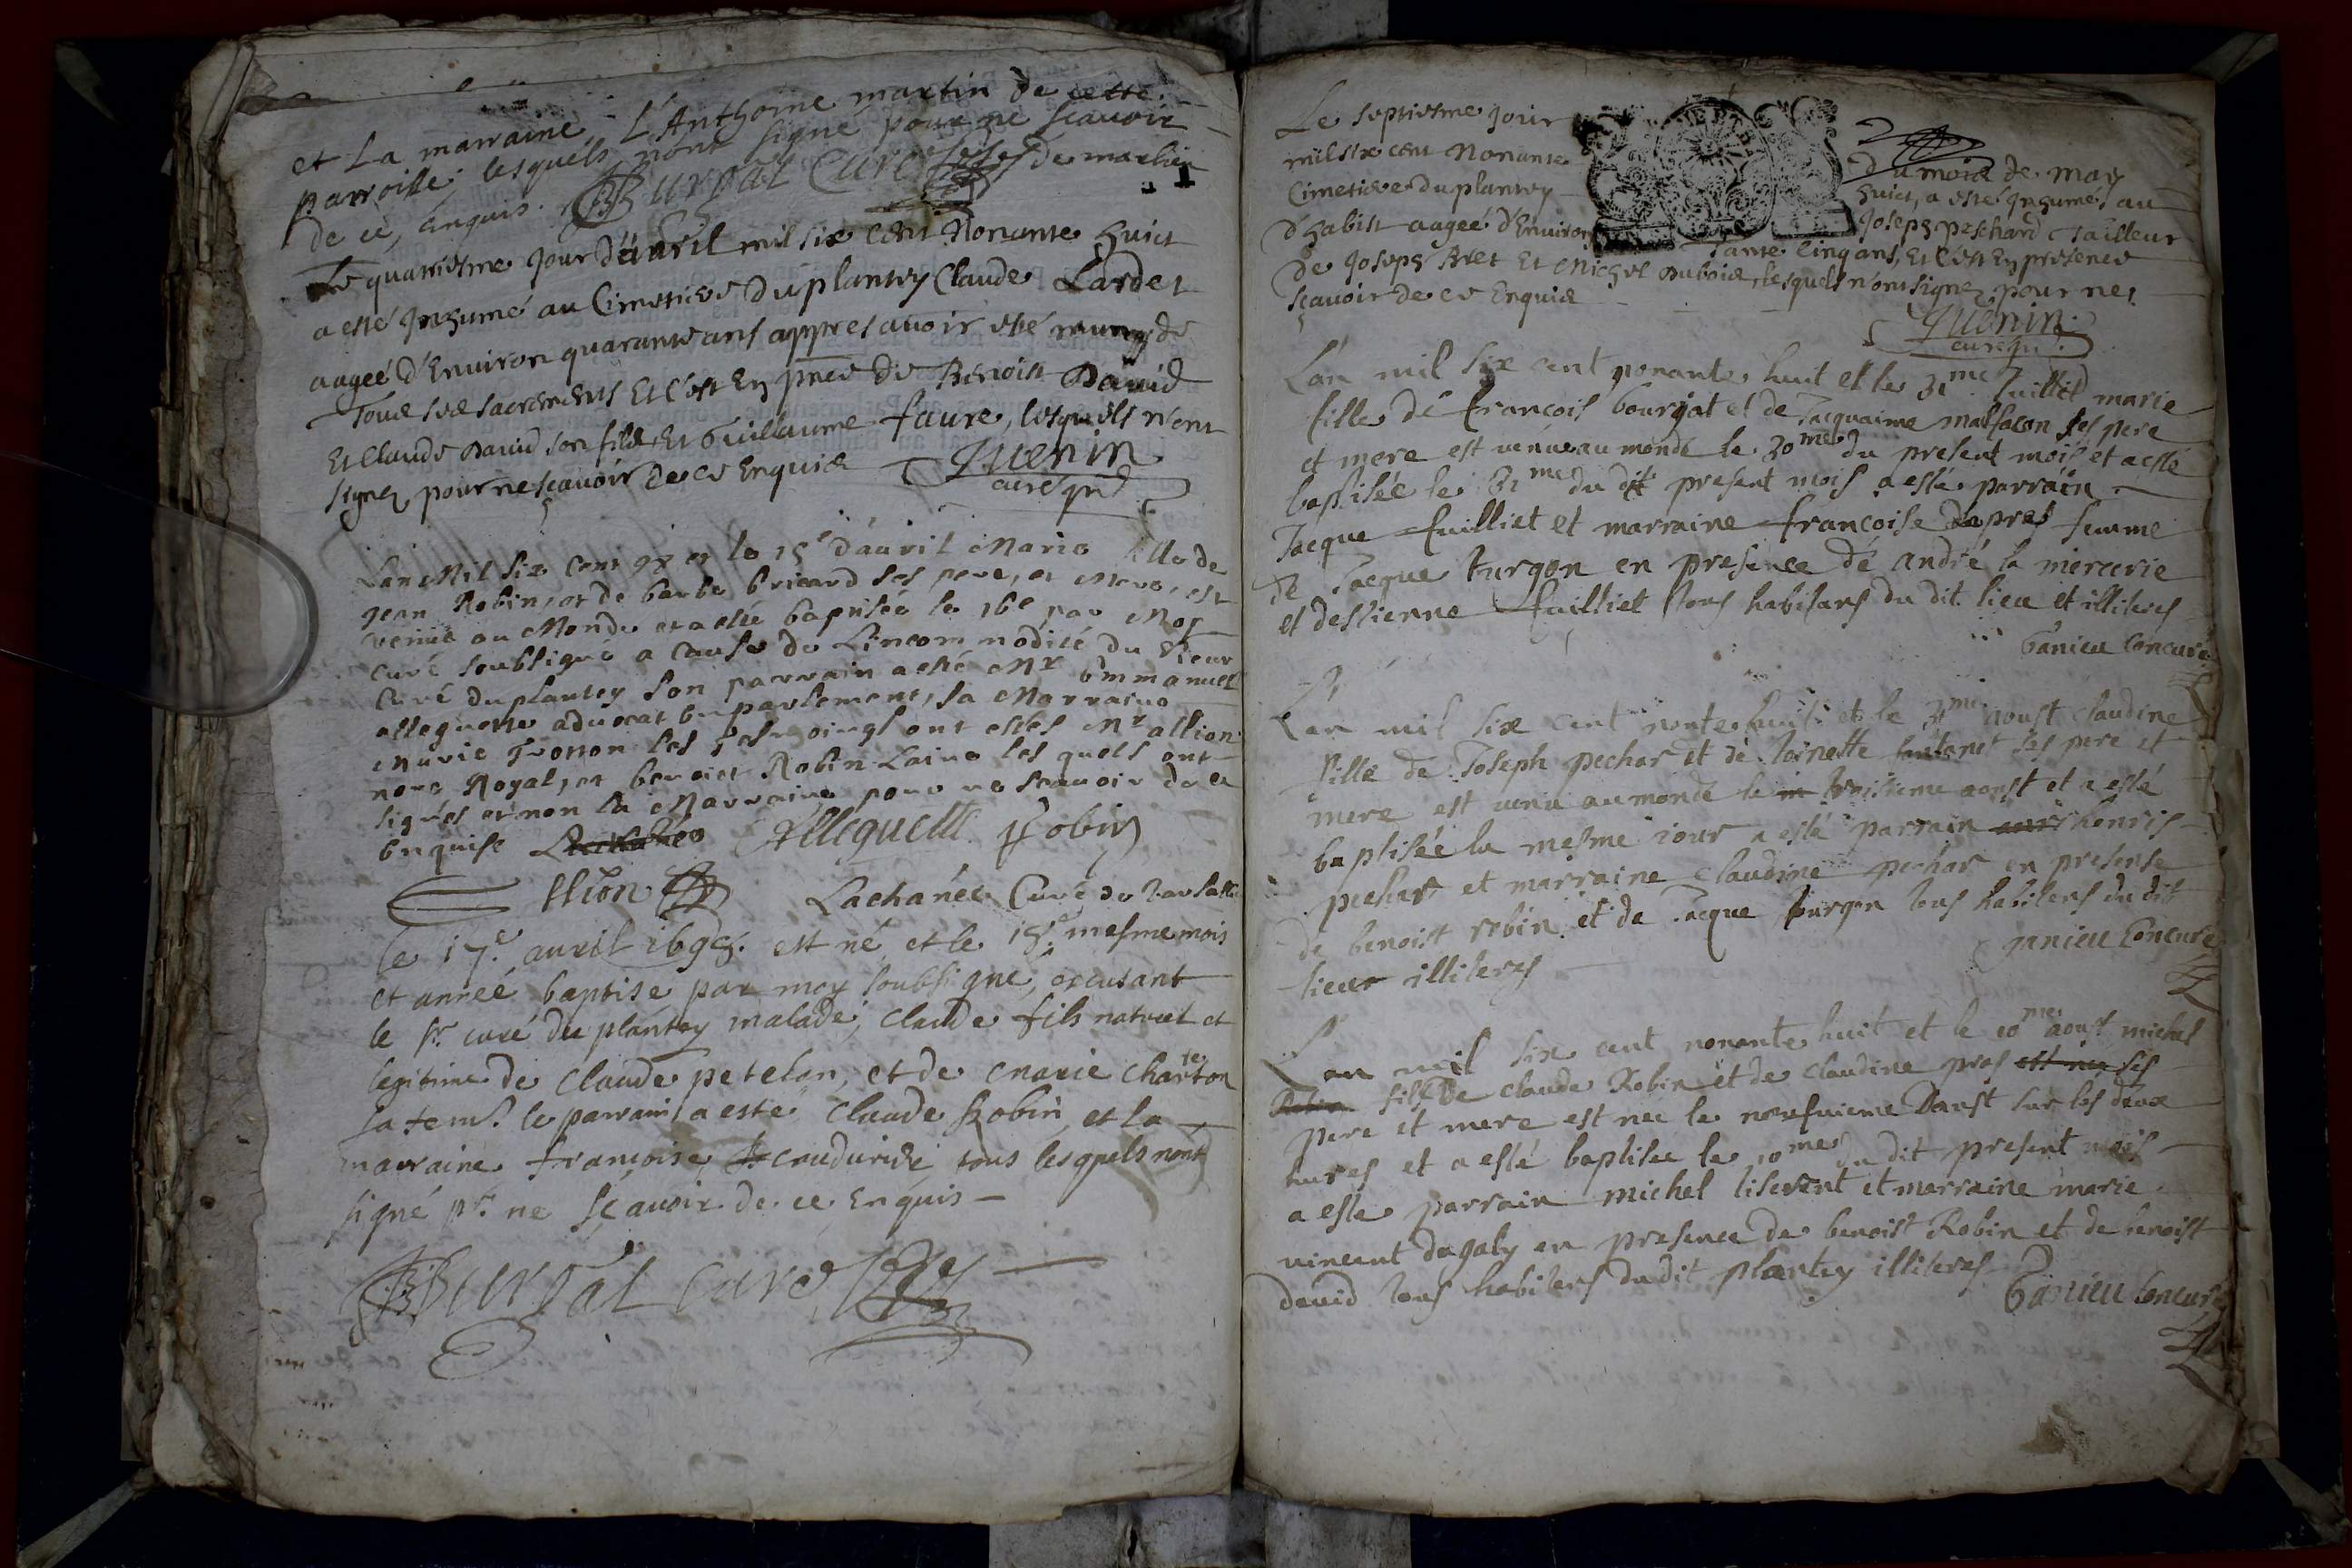 et La marraine L'Anthoine martin de cette
parroisse, lesquels n'ont signé pour ne scavoir
de ce, enquis. Burgat Curé de marlieu
Le quatriesme Jour d'auril mil six cent Nonante huict
a esté Inhumé au Cimetiere du plantey Claude Lardet
aagée d'Enuiron quarante ans appres auoir esté muny de
Tous ses sacrements Et C'est En pnce de Benoist Dauid
Et Claude Dauid son fils Et Guillaume faure, lesquels n'ont
signez pour ne sçauoir de ce Enquis
Quenin
curé
Lan Mil six cent 98 et le 15e d'auril Marie fille de
Jean Robin, et de barbe bricard ses pere, et Mere, est
venue au Monde et a esté baptisée le 16e par Moy
Curé soubsigné a cause de Lincommodité du sieur
Curé du plantey son parrain a esté Mr emmanuel
allequette aduocat en parlement, sa Marraine
Marie Trotton les tesmoings ont estés Mr allion
nore Royal, et benoict Robin Laine les quels ont
signés et non la Marraine pour ne scauoir de ce
Enquise Allequette Robin
llion Lachanée Curé de
le 17e auril 1698. est né et le 18e mesme mois
et année baptisé par moy soubsigné, excusant
le sr. curé du plantey malade, Claude fils naturel et
legitime de Claude petelon, et de marie Charton
sa feme. le parrain a esté Claude Robin et la
marraine françoise couduride tous lesquels n'ont
signé pr. ne sçauoir de ce Enquis
Burgat curé
Le septiesme Jour du mois de may
mil six cent Nonante huict, a esté Inhumé au
Cimetiere du plantey Joseph peschard Tailleur
d'habist aageé d'Enuiron tante Cinq ans, Et C'est En presence
de Joseph Bret Et Michel Dubois, lesquels n'ont signez pour ne
sçauoir de ce Enquis
Quenin
curé
L'an mil six cent nonante huit et le 31me Juillet marie
fille de françois bourjat et de Jacquaime malfacon ses pere
et mere est venue au monde le 30me du present mois et a esté
baptisée le 31me du dit present mois a esté parrain
Jacque fuilliet et marraine françoise dapres femme
de Jacque turgon en presence dé andré la mercerie
et destienne fuilliet tous habitans du dit lieu et illiteres
Ganieu Concuré
Lan mil six cent nonte huit et le 3me aoust claudine
fille de Joseph pechar et de toinette ses pere et
mere est venu au monde le troisieme aoust et a esté
baptisée le mesme iour a esté parrain henris
pechar et marraine claudine pechar en presense
de benoist robin et de Jacque turgon tous habitens du dit
lieu illiteres
ganieu Concuré
L'an mil six cent nonante huit et le 10me aoust michel
Robin fils de claude Robin et de claudine pras est ne ses
pere et mere est nee le neufuieme Daoust sur les deux
hures et a esté baptisee le 10me du dit present mois
a esté parrain michel et marraine marie
vincent dagaly en presence de benoist Robin et de benoist
david tous habitens du dit plantey illiteres
Ganieu Concuré